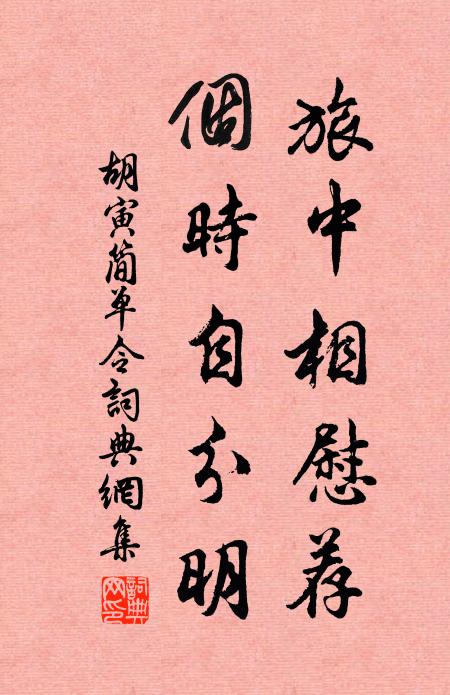 旅中相慰荐
個時自分明
胡寅简单令詞典網集
詞典网印